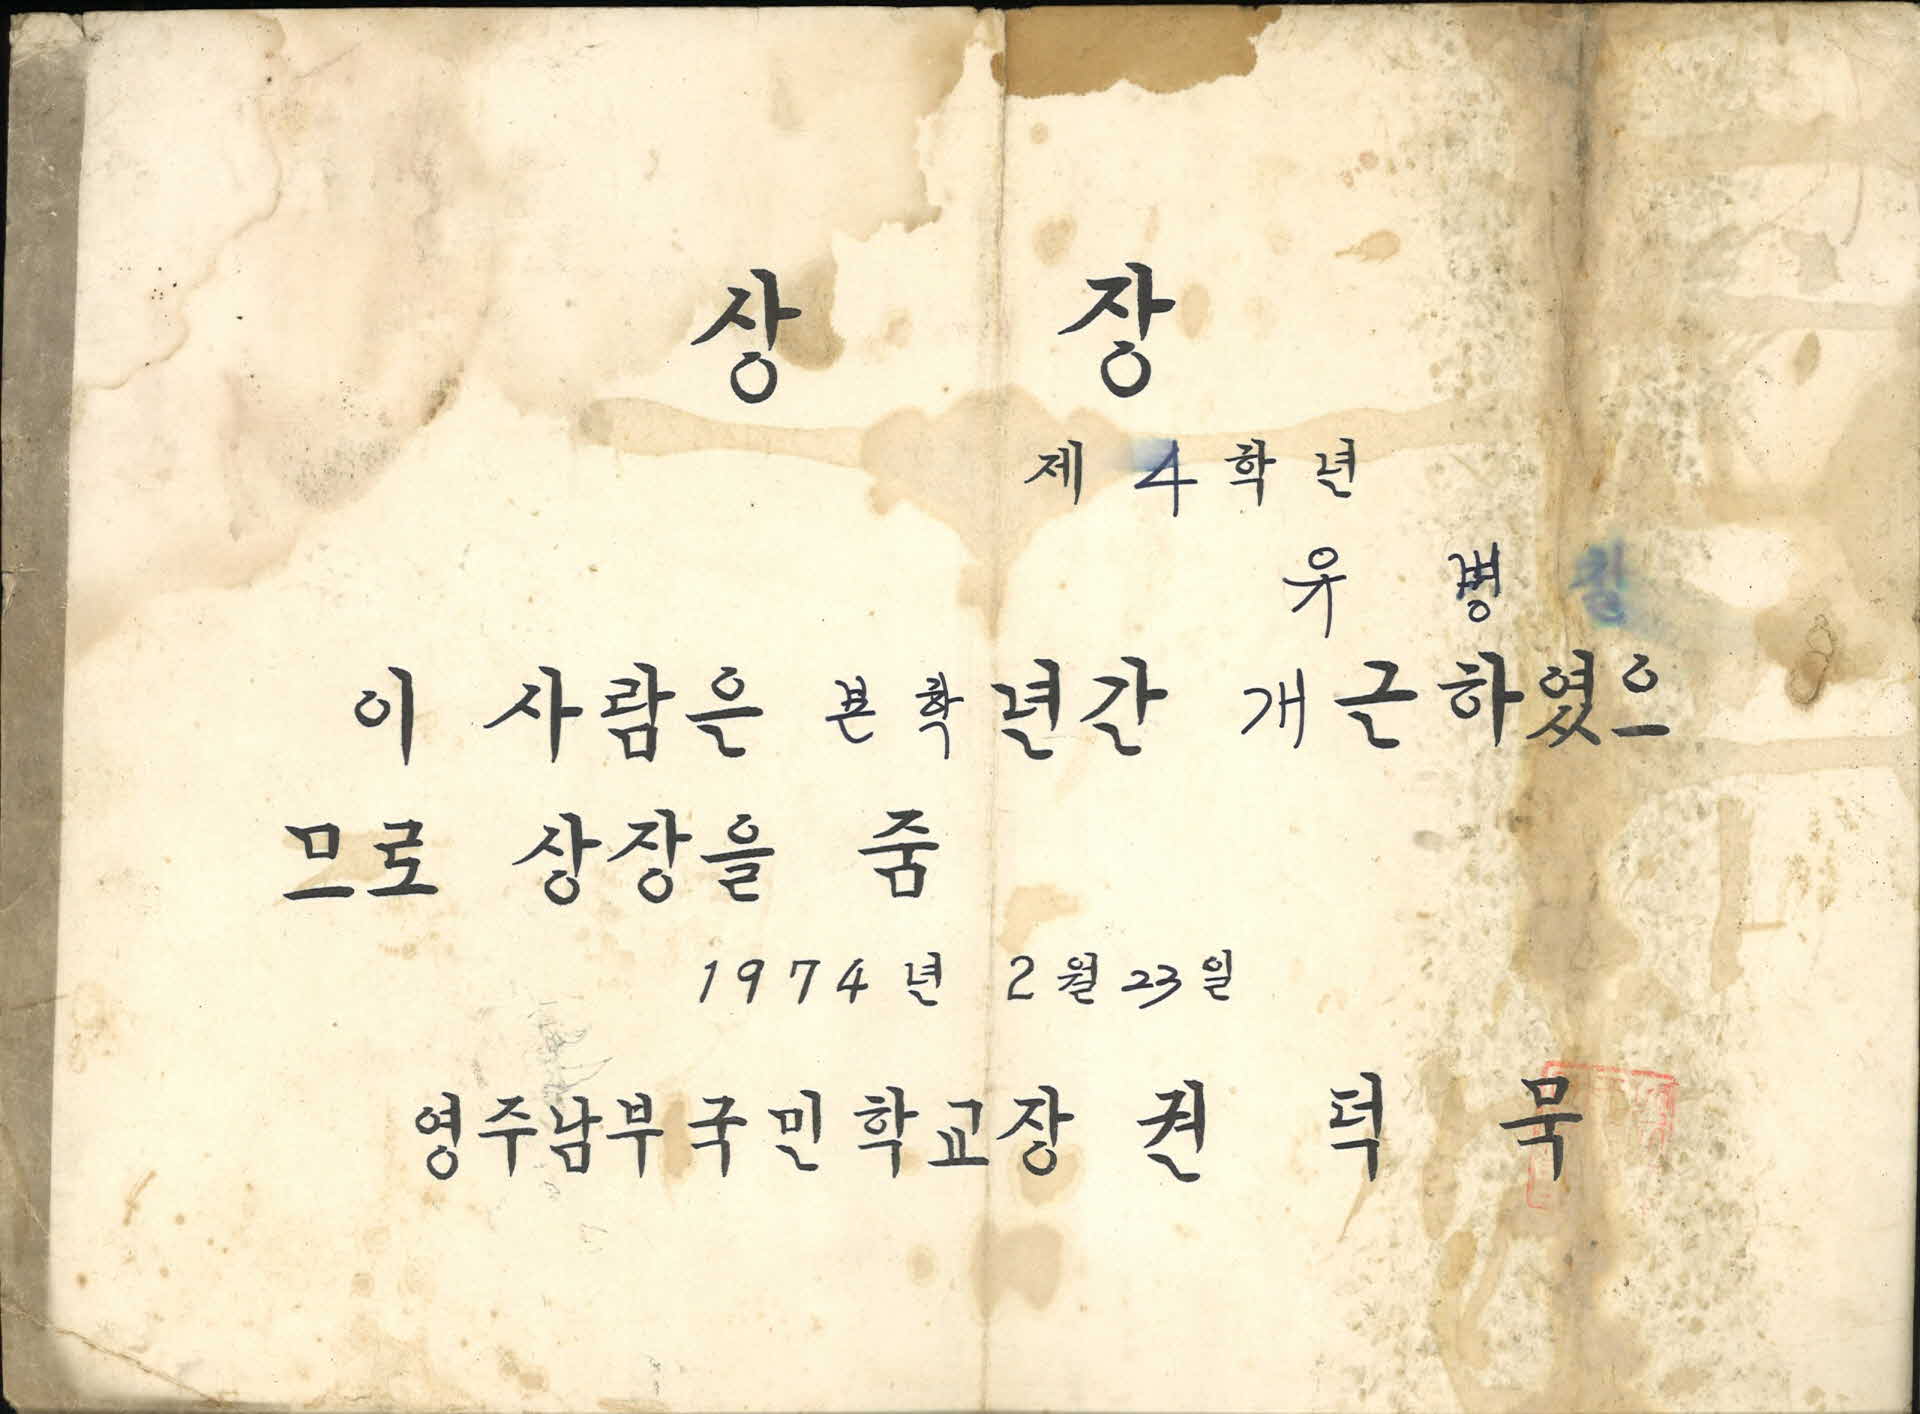 상 장
제 4 학 년
유 병 칠
이 사람은 본학년간 개근하였으
므로 상장을 줌
1974년 2월 23일
영주남부국민학교장 권 덕 묵